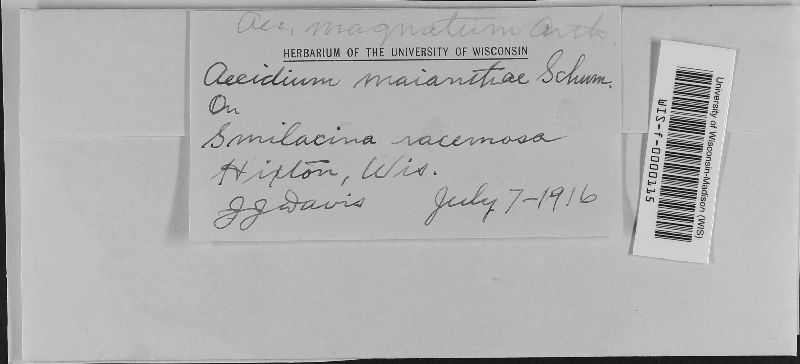 Aec. magnatum Arth.
HERBARIUM OF THE UNIVERSITY OF WISCONSIN
Aecidium maianthae Schum.
On
Smilacina racemosa
Hixton, Wis.
JJ Davis July 7-1916
University of Wisconsin-Madison (WIS)
WIS-f-0000115